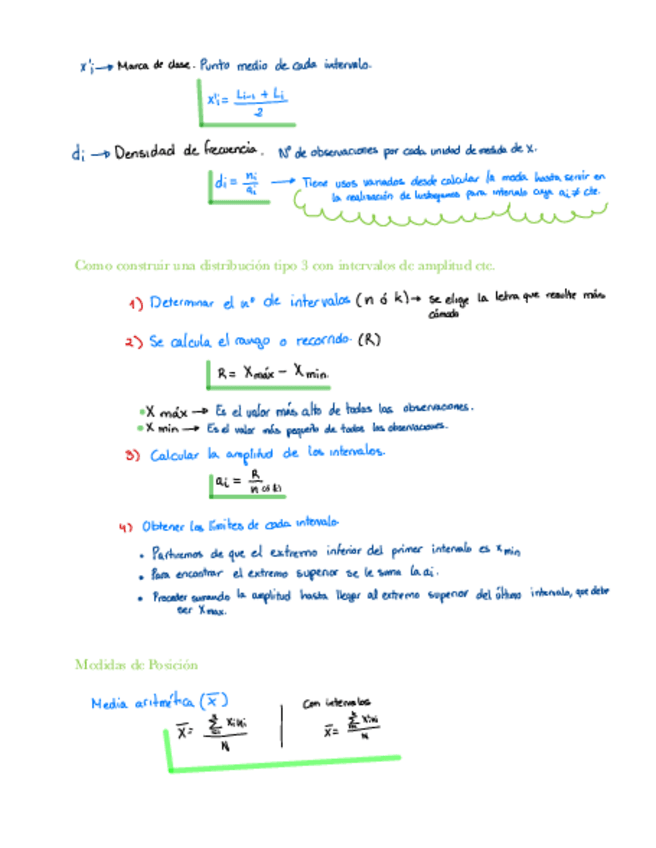 x'i → Marca de clase. Punto medio de cada intervalo.
x'i = (Li-1 + Li) / 2
di → Densidad de frecuencia. Nº de observaciones por cada unidad de medida de x.
di = ni / ai → Tiene usos variados desde calcular la moda hasta servir en
la realización de histogramas para intervalo cuya ai ≠ cte.
Como construir una distribución tipo 3 con intervalos de amplitud cte.
1) Determinar el nº de intervalos (n ó k) → se elige la letra que resulte más
cómoda
2) Se calcula el rango o recorrido. (R)
R = Xmáx - Xmin.
• X máx → Es el valor más alto de todas las observaciones.
• X min → Es el valor más pequeño de todas las observaciones.
3) Calcular la amplitud de los intervalos.
ai = R / n (ó k)
4) Obtener los límites de cada intervalo
• Partiremos de que el extremo inferior del primer intervalo es xmin
• Para encontrar el extremo superior se le suma la ai.
• Proceder sumando la amplitud hasta llegar al extremo superior del último intervalo, que debe
ser Xmax.
Medidas de Posición
Media aritmética (x̄)
Con intervalos
x̄ = Σ xi ni / N
x̄ = Σ x'i ni / N